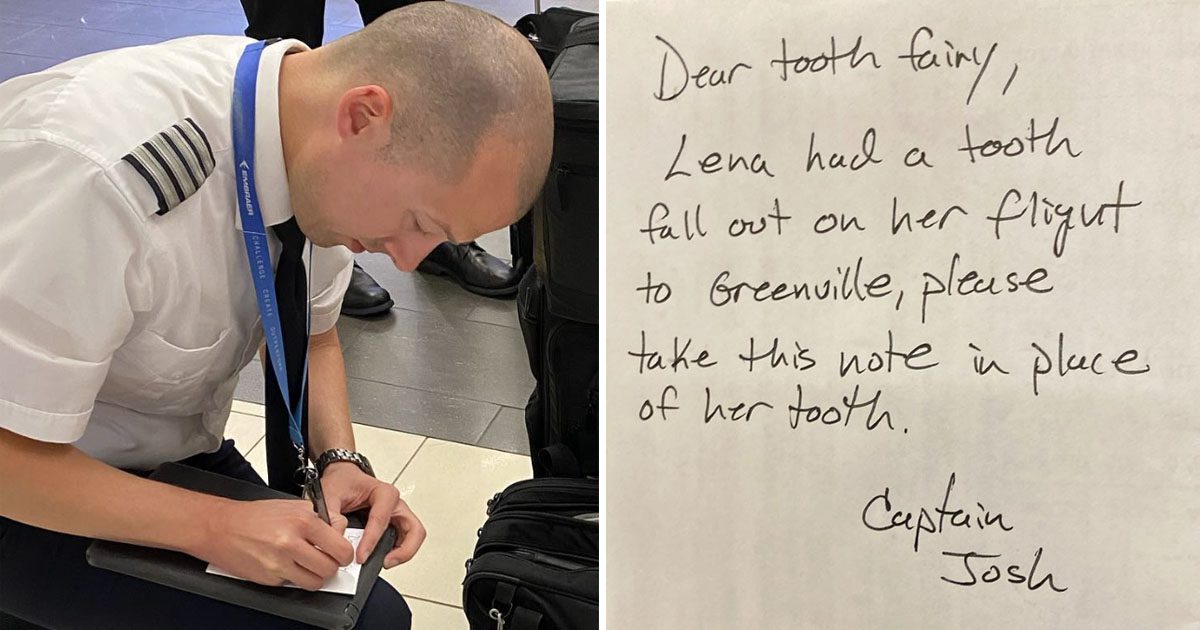 EMBRAER
CHALLENGE. CREATE. OUTPERFORM.
Dear tooth fairy,
Lena had a tooth
fall out on her flight
to Greenville, please
take this note in place
of her tooth.
Captain
Josh